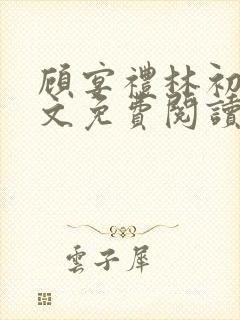 顧宴禮林初
文免費閱讀
雲子犀